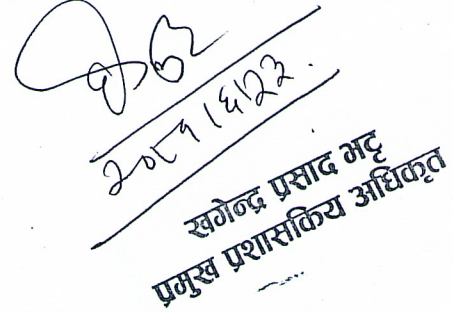 २०८१।६।२२.
खगेन्द्र प्रसाद भट्ट
प्रमुख प्रशासकिय अधिकृत